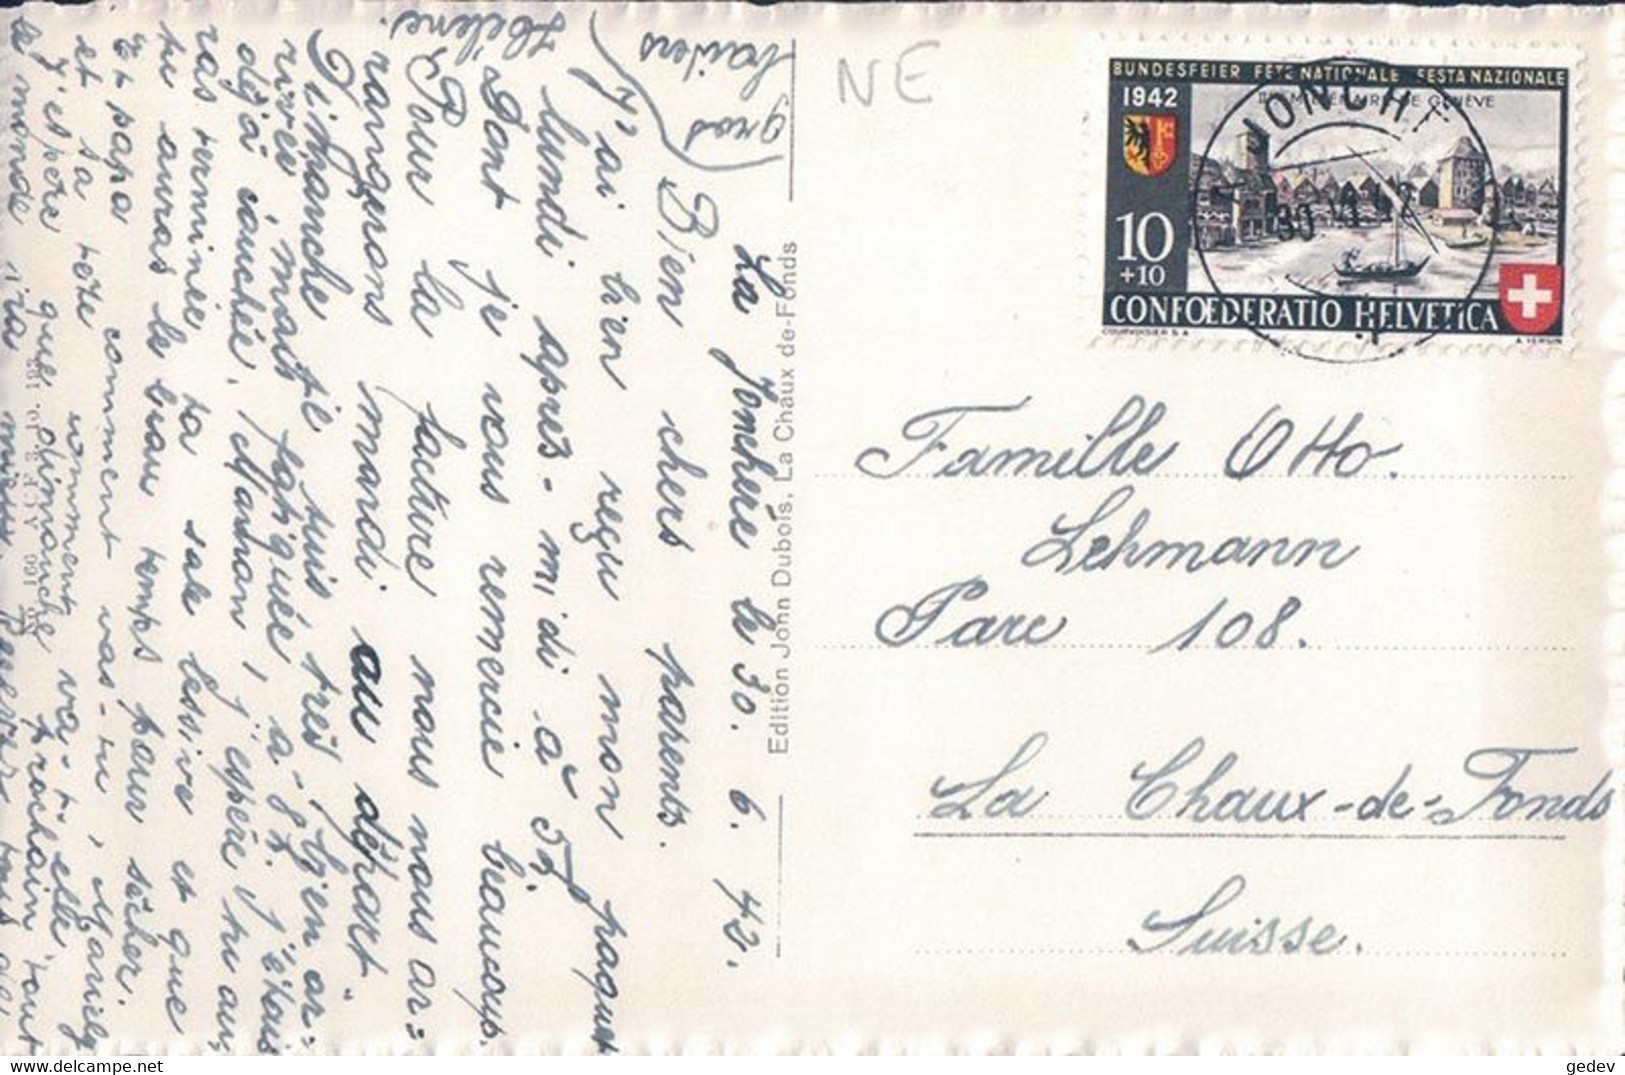 La Jonchère le 30. 6. 42.
Bien chers parents.
J'ai bien reçu mon paquet
lundi après-midi à 5h.
dont je vous remercie beaucoup.
Pour la facture nous nous ar=
rangerons mardi au départ.
Dimanche je suis très bien ar=
rivée, mais fatiguée, à 9h. j'étais
déjà couchée. Maman, j'espère tu au,
ras terminée ta sale lessive et que
tu auras le beau temps pour sécher.
Et papa comment vas-tu, Mariely
et sa tête comment va-t-elle,
J'espère que dimanche prochain tout
le monde ira mieux.
gros baisers
Hélène.
Edition John Dubois, La Chaux-de-Fonds
NE
BUNDESFEIER FÊTE NATIONALE FESTA NAZIONALE
1942
IIe MILLÉNAIRE DE GENÈVE
10
+10
CONFOEDERATIO HELVETICA
COURVOISIER S.A.
A. YERSIN
JONCHÈ
Famille Otto.
Lehmann
Parc 108.
La Chaux-de-Fonds
Suisse.